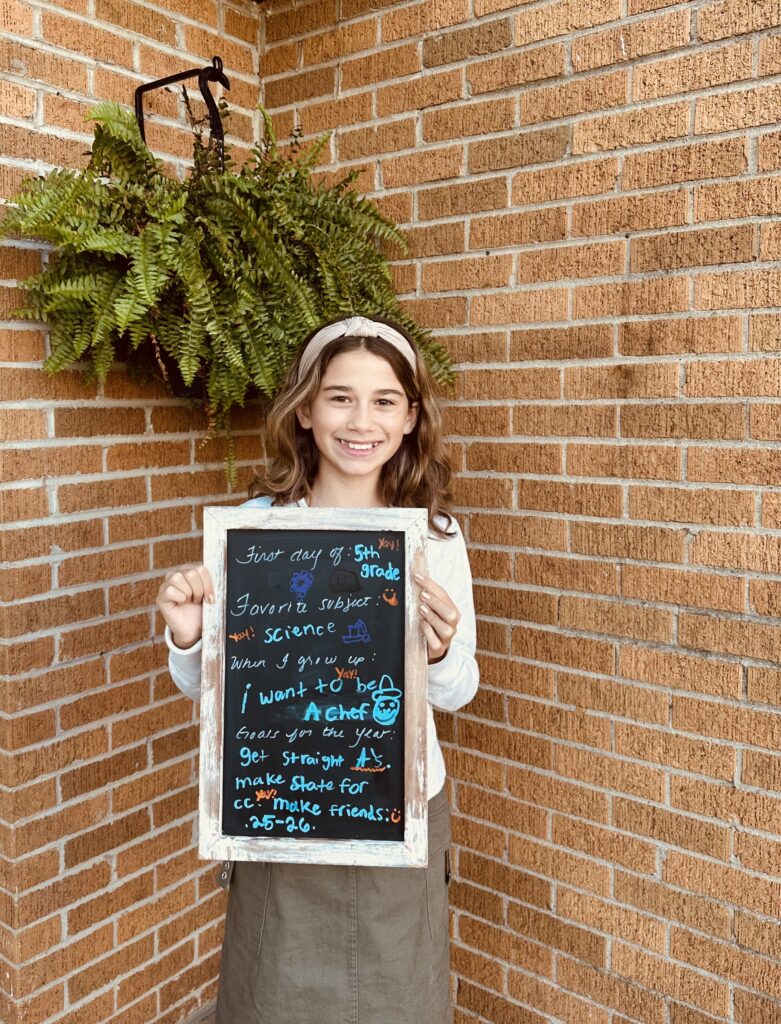 First day of: 5th Yay!
grade
Favorite subject:
Yay! science
When I grow up:
Yay!
i want to be
A chef
Goals for the year:
get straight A's.
make State for
cc. Yay! make friends:
.25-26.